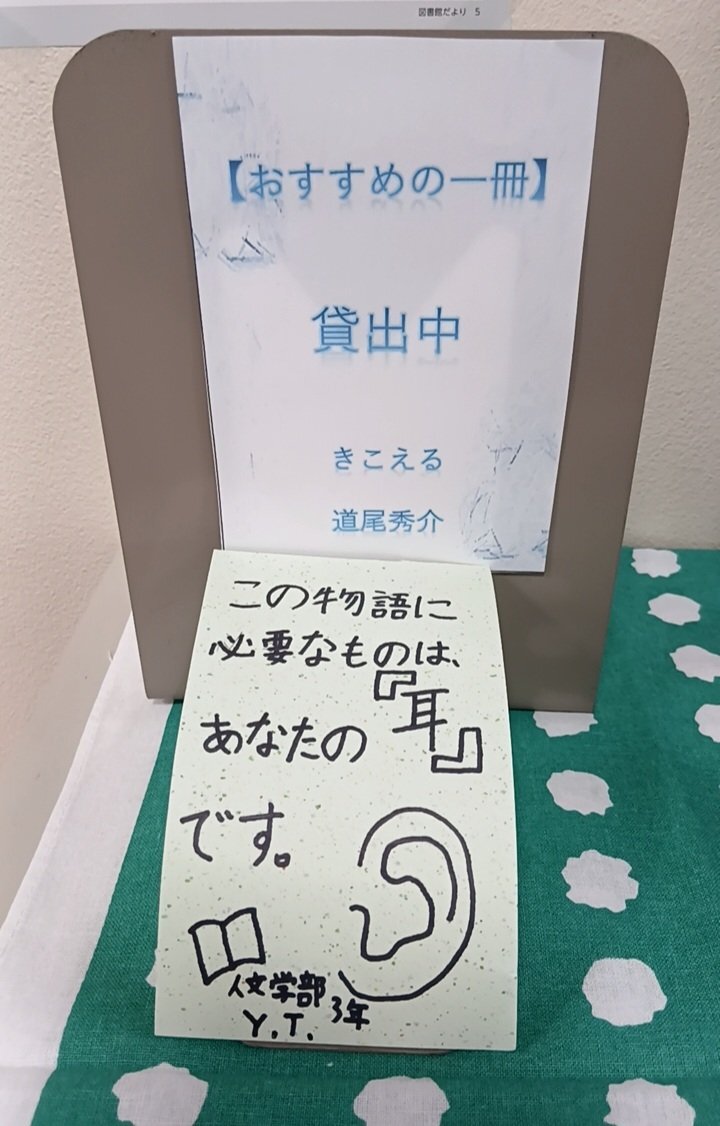 図書館だより 5
【おすすめの一冊】
貸出中
きこえる
道尾秀介
この物語に
必要なものは、
あなたの『耳』
です。
人文学部3年
Y.T.